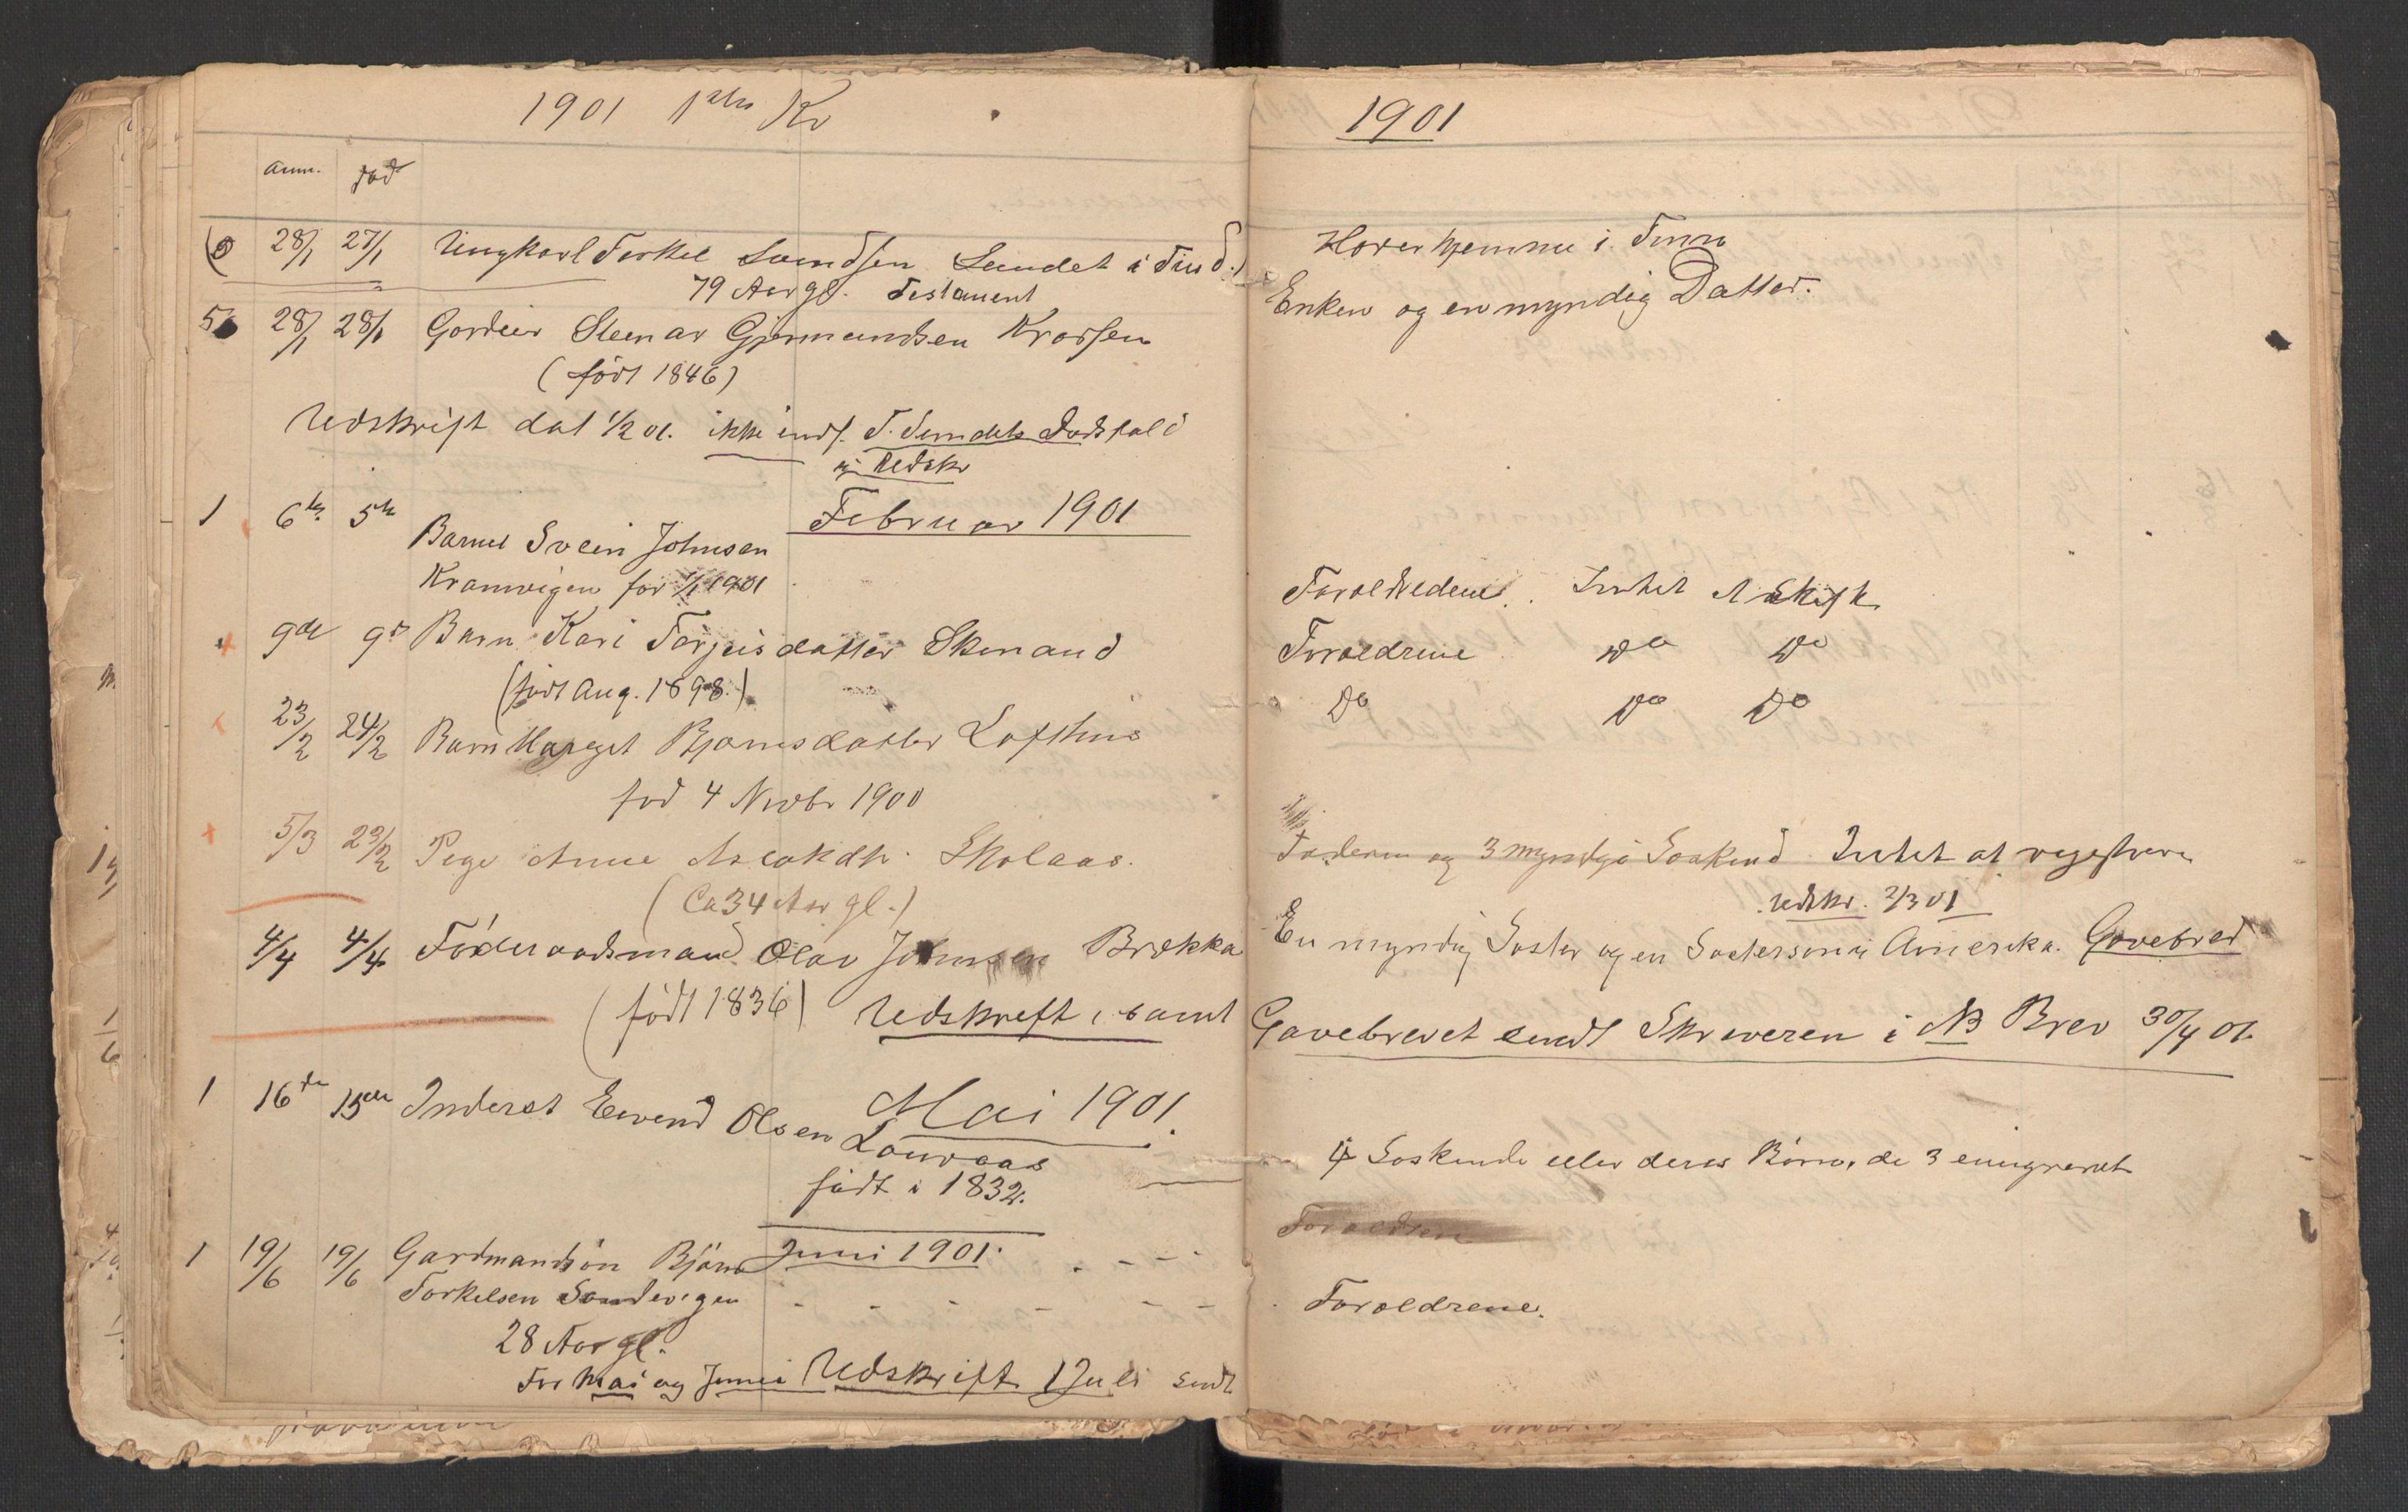 1901 1ste Kv
Anm. død
28/1 27/1 Ungkarl Torkel Svendsen Sandet i Tind.
79 Aar gl. Testament
5 28/1 28/1 Gardeier Steinar Gjermundsen Krossen
(født 1846)
Udskrift dat 1/2 01. ikke indf. T. Dødsfald
Udskr
Februar 1901
1 6te 5te Barnet Svein Johnsen
Kramvigen 1901
9de 9d Barn Kari Torjusdatter Skinand
(født Aug. 1898.)
23/2 24/2 Barn Margit Bjørnsdatter Lofthus
fød 4 Novbr 1900
5/3 23/2 Pige Anne Aslakdtr. Skolaas.
(Ca 34 Aar gl.)
4/4 4/4 Föderaadsmand Olav Johnsen Brekka
(födt 1836) Udskrift, samt
Mai 1901.
1 16de 15de Inderst Eivind Olsen
Louvaas
födt i 1832.
Juni 1901.
1 19/6 19/6 Gardmandsön Björn
Torkelsen Sandvigen
28 Aar gl.
For Mai og Juni Udskrift 1 Juli sendt
1901
Hører hjemme i Tinn
Enken og en myndig Datter.
Forældrene. Intet at Skifte
Forældrene Do Do
Do Do Do
Faderen og 3 myndige Søskend Intet at registrere
Udskr. 2/3 01
En myndig Søster og en Søstersøn i Amerika. Gavebrev
Gavebrevet sendt Skriveren i NB Brev 30/4 01.
4 Søskende eller deres Börn, de 3 emigreret
Forældrene
Forældrene.